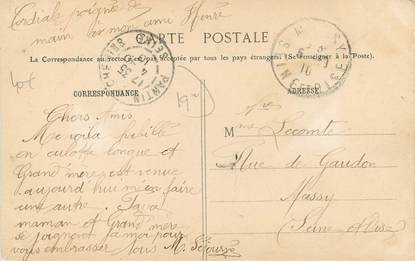 Cordiale poignée de
main à mon ami Henri
CARTE POSTALE
La Correspondance au verso n'est pas acceptée par tous les pays étrangers. (Se renseigner à la Poste.)
CORRESPONDANCE
ADRESSE
PANTIN
SEINE
MASSY
SEINE-ET-OISE
Chers Amis
Me voila
en culotte longue et
Grand mère est venue
aujourd'hui m'en faire
une autre. Papa
maman et Grand mère
se joignent à moi pour
vous embrasser tous M.
Mme Lecomte
Rue de Gaudon
Massy
Seine et Oise